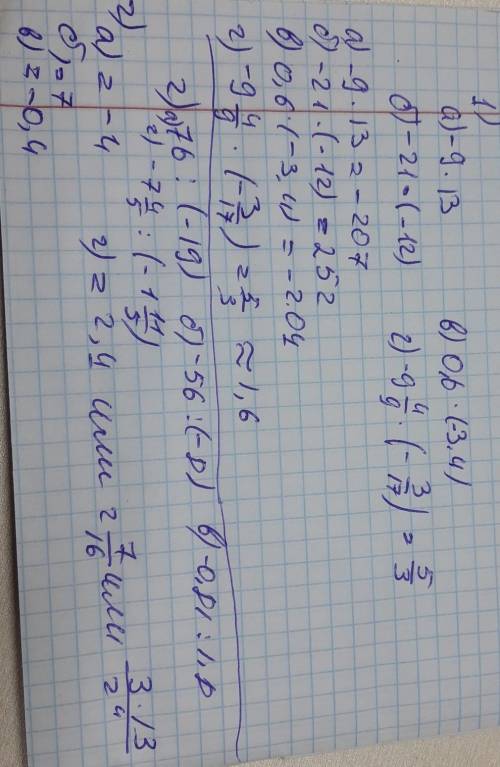 1)
а) -9·13    в) 0,6·(-3,4)
б) -21·(-12)    г) -9 4/9 · (-3/17) = 5/3
а) -9·13 = -207
б) -21·(-12) = 252
в) 0,6·(-3,4) = -2.04
г) -9 4/9 · (-3/17) = 5/3 ≈ 1,6
2) а) 76 : (-19)    б) -56 : (-8)    в) -0,81 : 1,8
г) -7 4/5 : (-1 11/5)
2)
а) = -4    г) = 2,4 или 2 7/16 или 3·13/2⁴
б) = 7
в) = -0,4